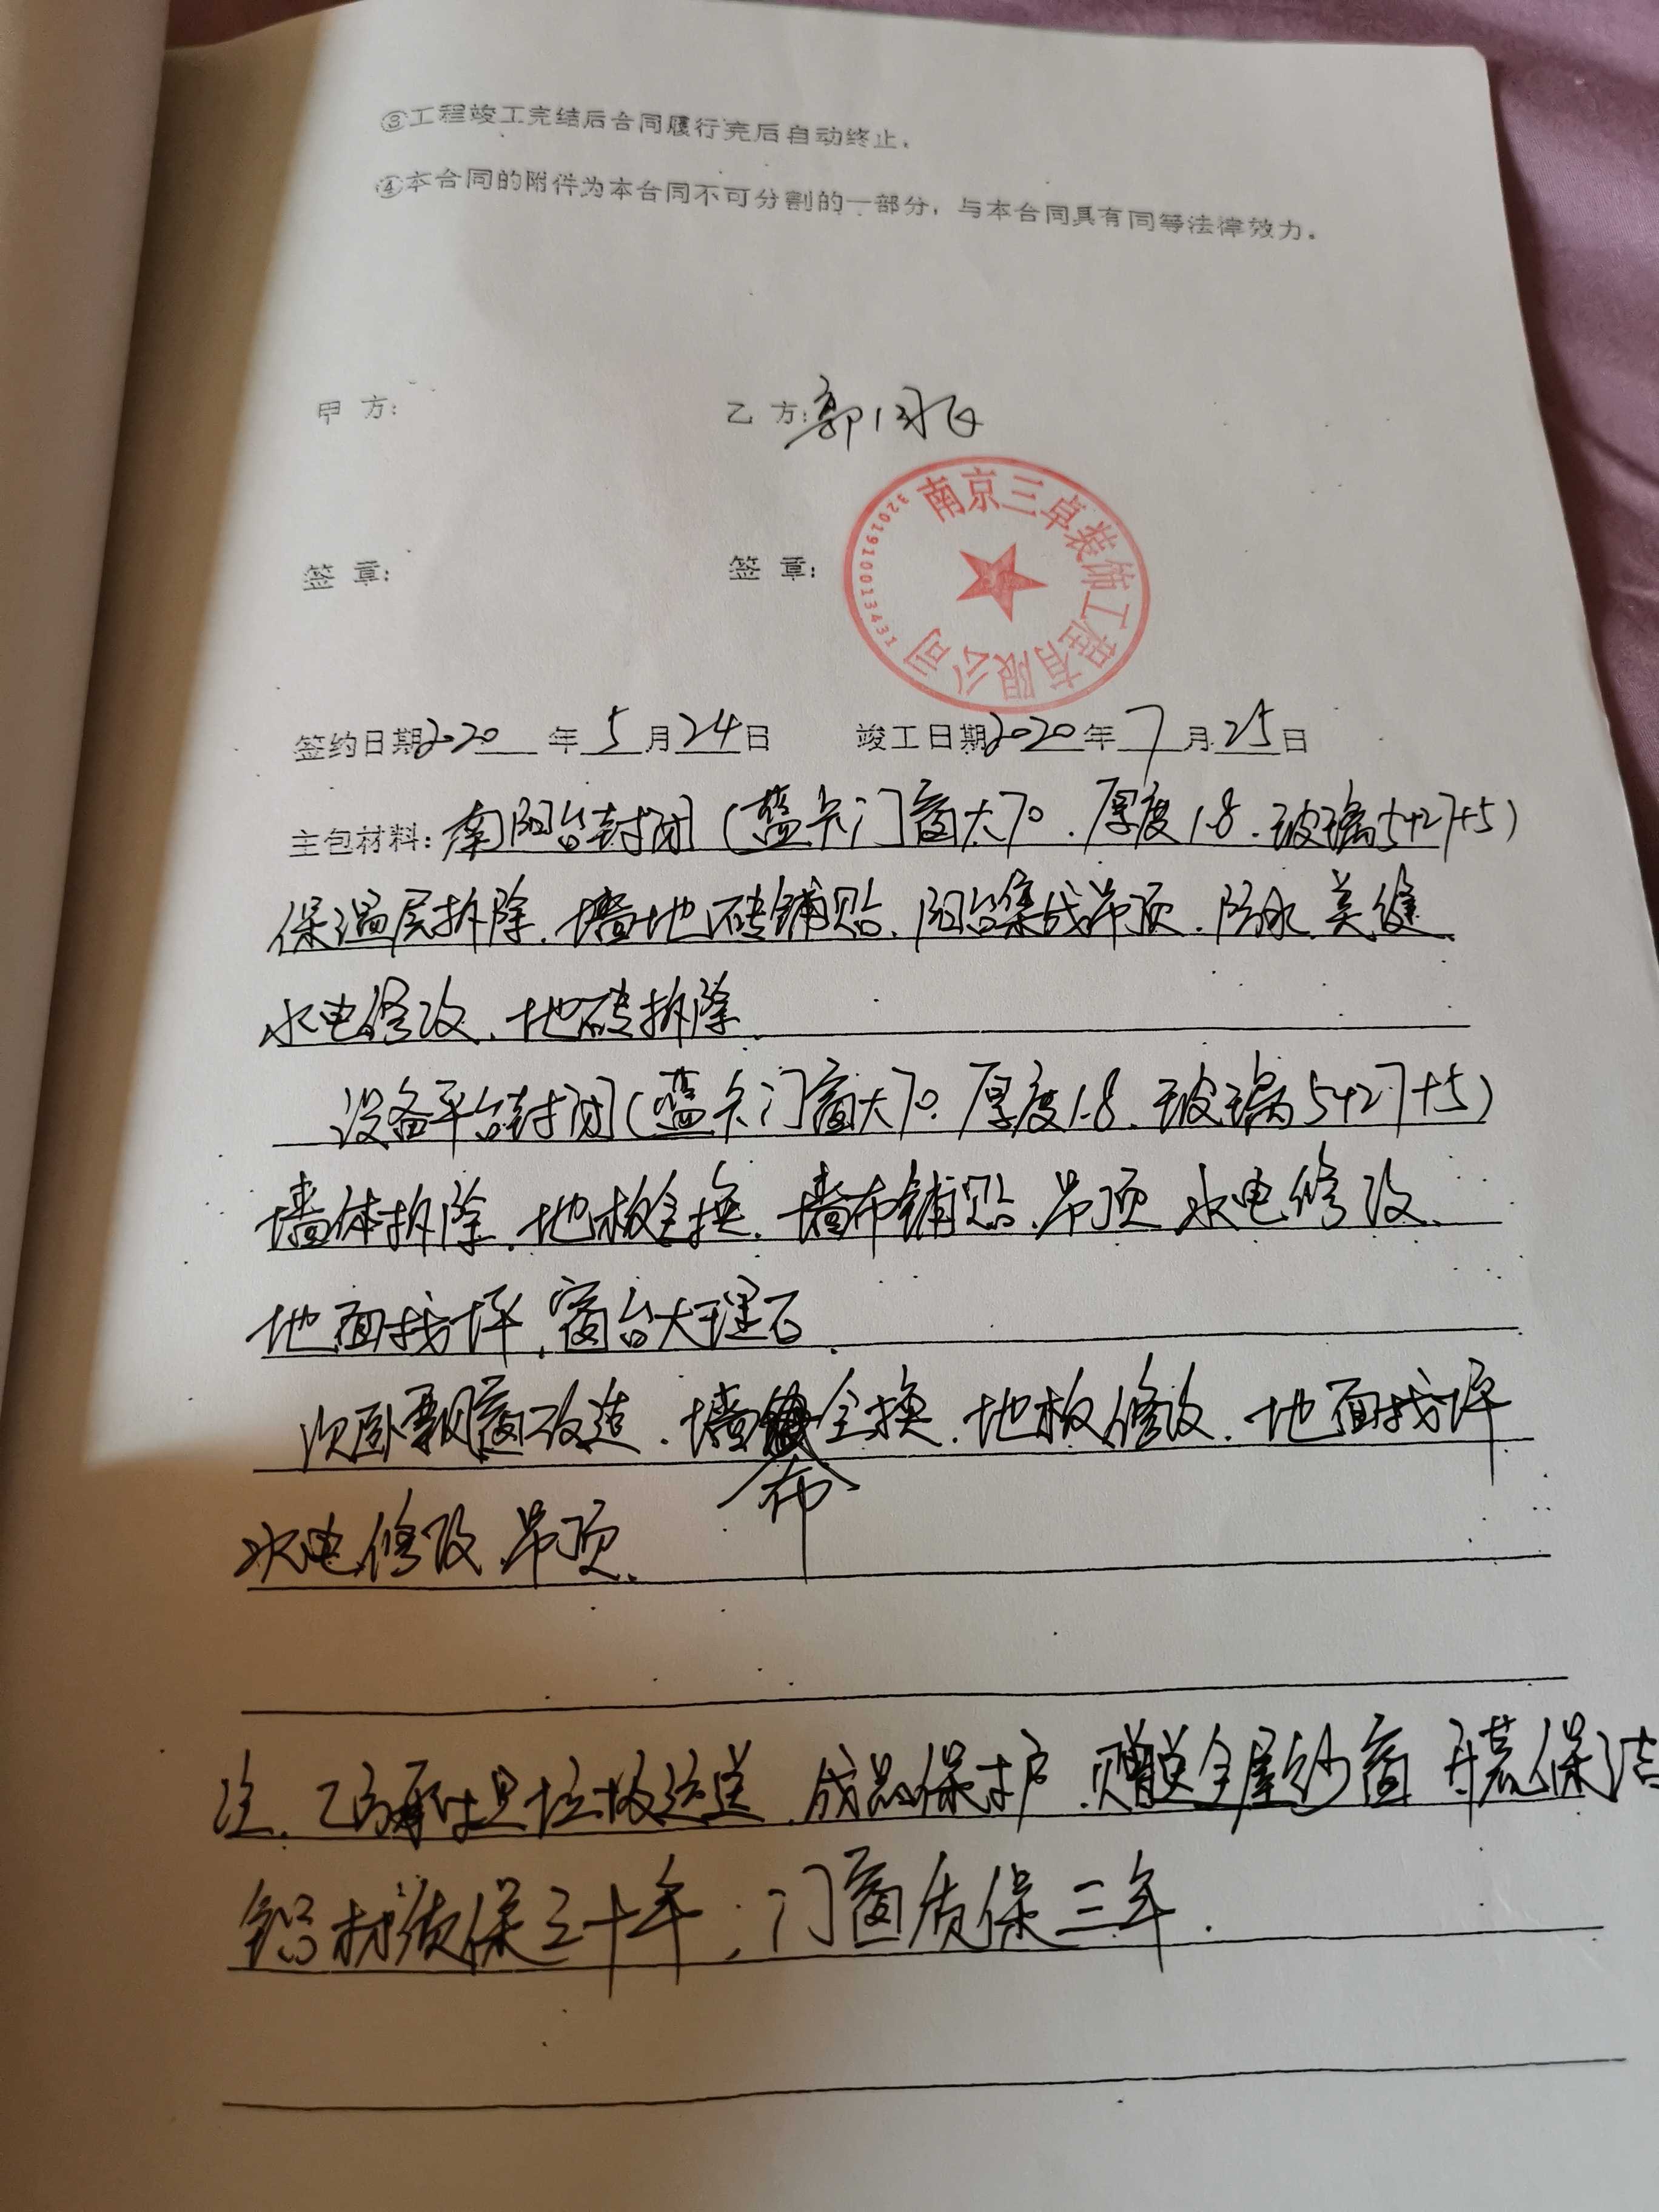 ③工程竣工完结后合同履行完后自动终止。
④本合同的附件为本合同不可分割的一部分，与本合同具有同等法律效力。
甲 方： 乙 方：郭
签 章： 签 章：
南京三卓装饰工程有限公司
3201910013431
签约日期2020年5月24日 竣工日期2020年7月25日
主包材料：南阳台封闭（蓝卡门窗大70、厚度1.8、玻璃5+27+5）
保温层拆除、墙地砖铺贴、阳台集成吊顶、防水、美缝、
水电修改、地砖拆除
设备平台封闭（蓝卡门窗大70、厚度1.8、玻璃5+27+5）
墙体拆除、地板全换、墙布铺贴、吊顶、水电修改、
地面找坪、窗台大理石
次卧飘窗改造、墙布全换、地板修改、地面找坪
水电修改、吊顶、
注、乙方承担垃圾运送、成品保护、赠送全屋纱窗 开荒保洁
铝材质保三十年；门窗质保三年.